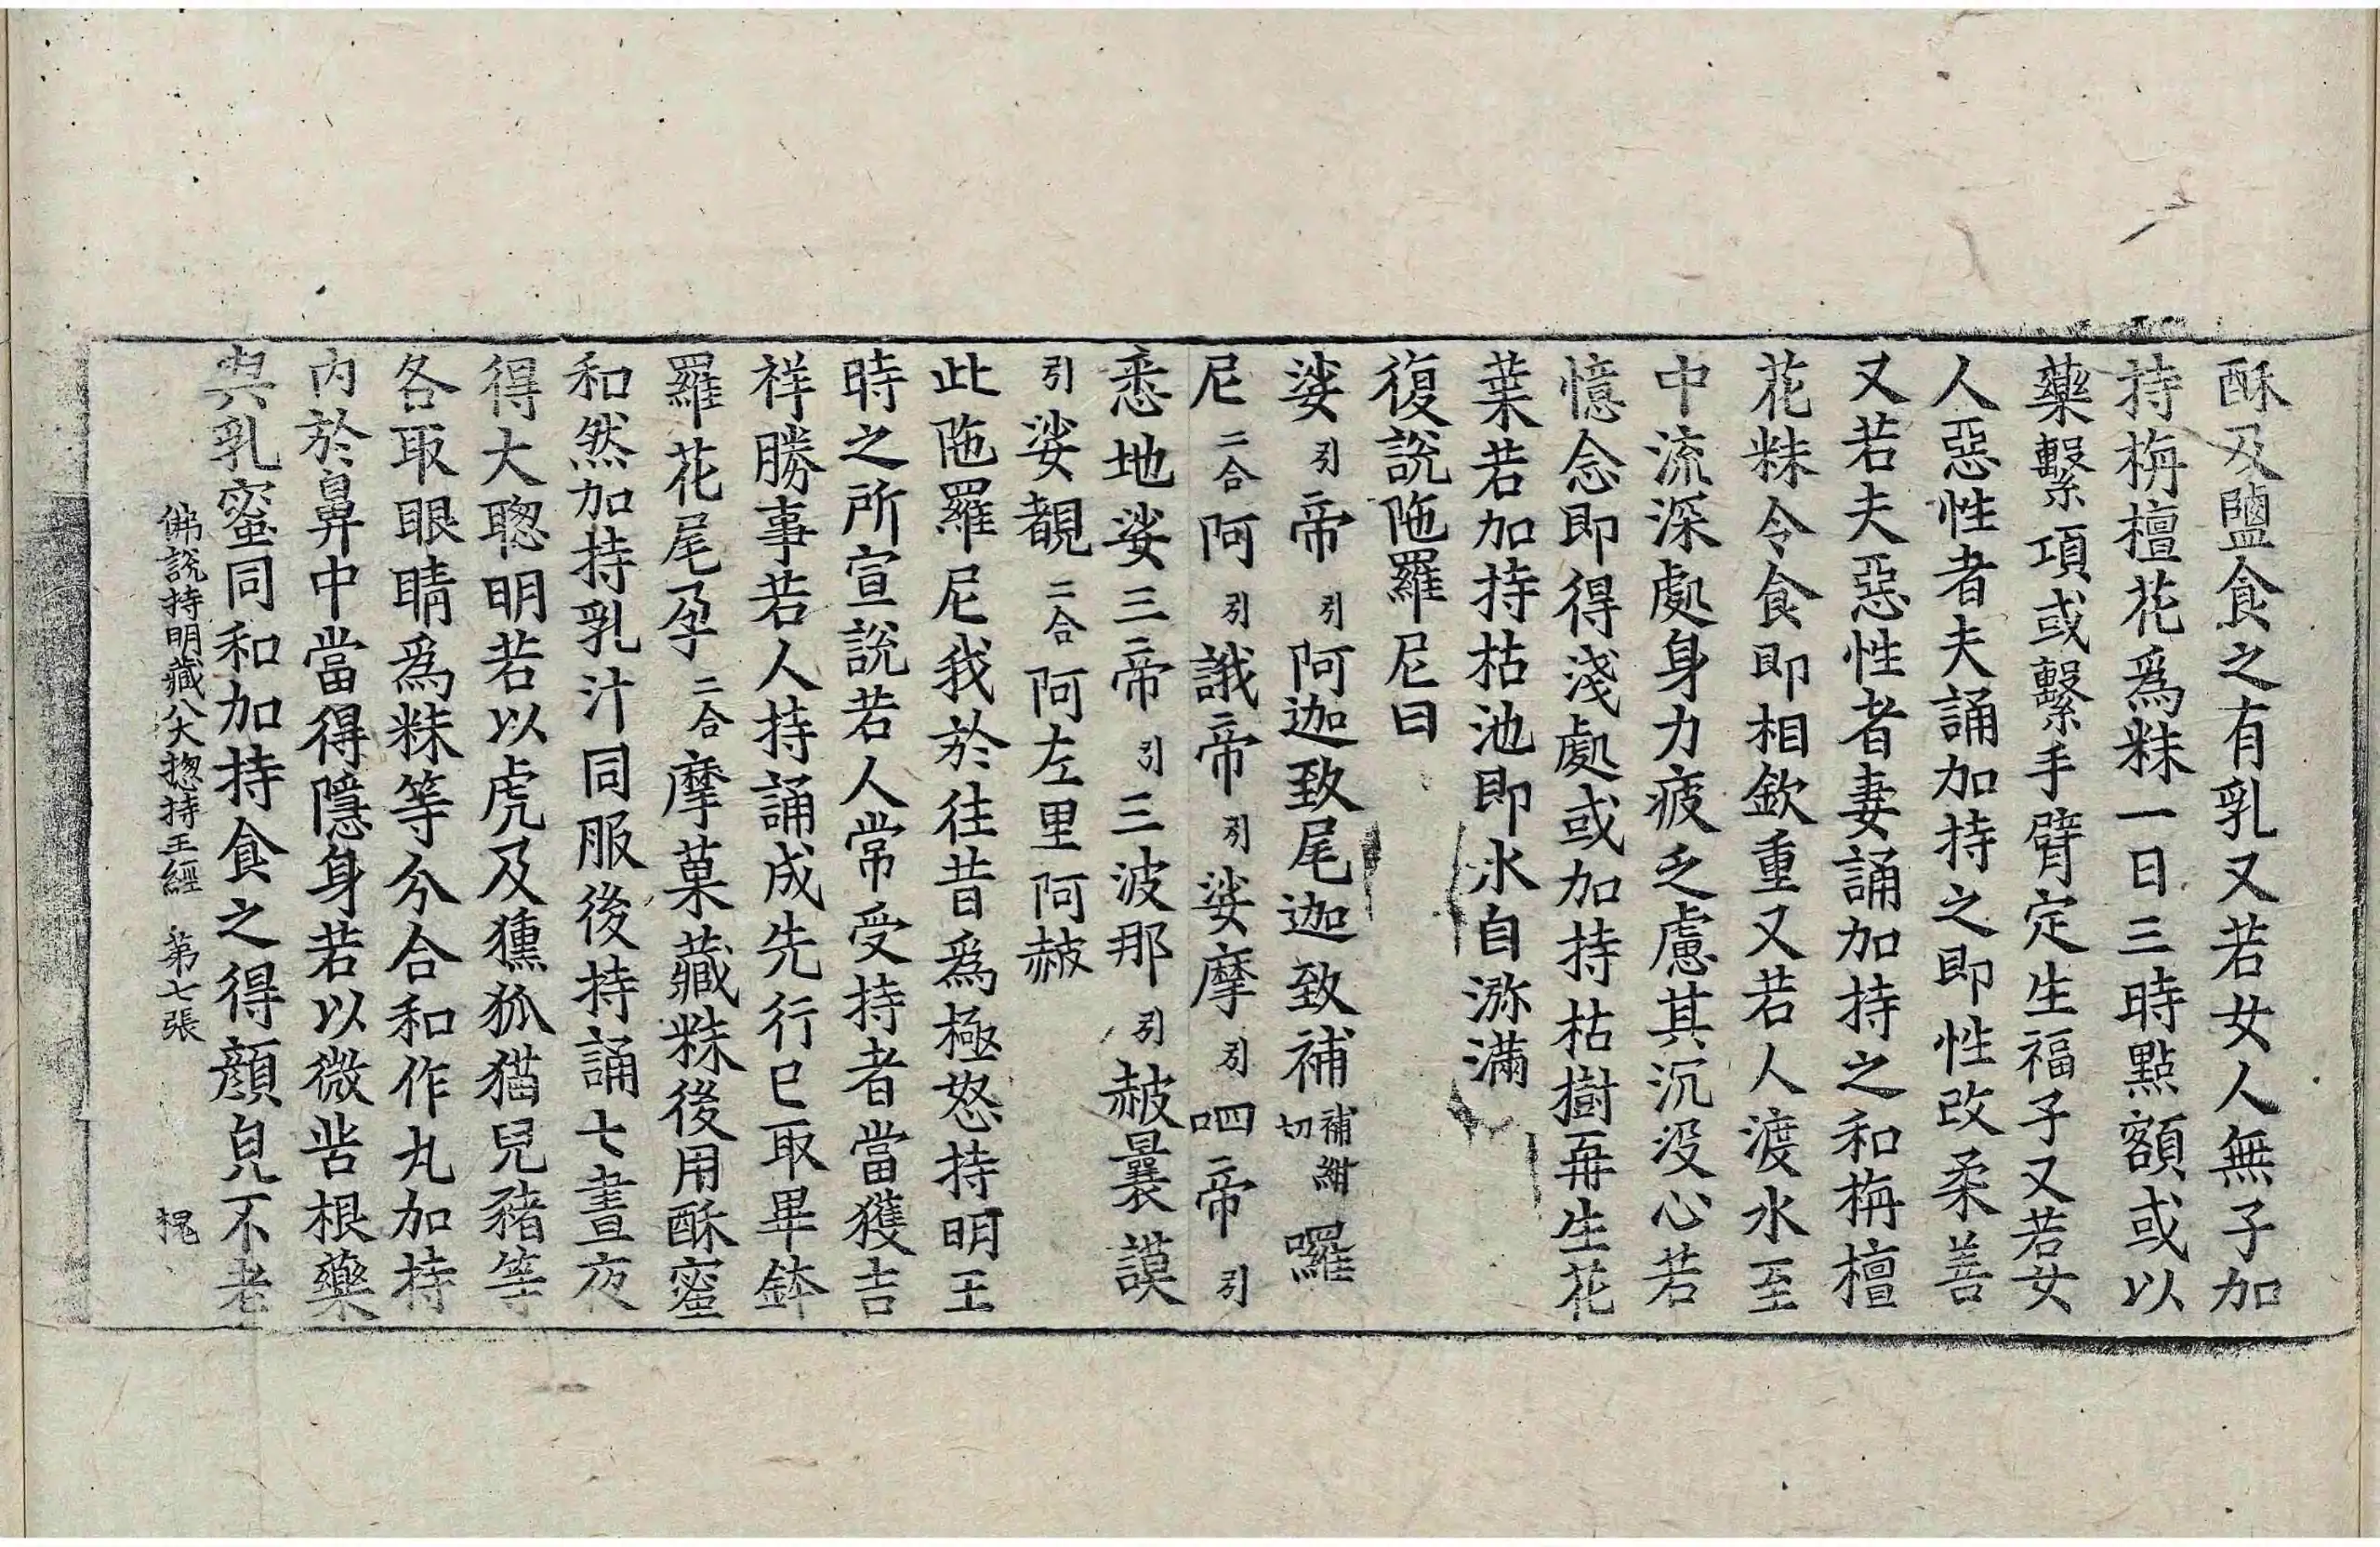 酥及鹽食之有乳又若女人無子加
持栴檀花爲粖一日三時點額或以
藥繫項或繫手臂定生福子又若女
人惡性者夫誦加持之即性改柔善
又若夫惡性者妻誦加持之和栴檀
花粖令食即相欽重又若人渡水至
中流深處身力疲乏慮其沉没心若
憶念即得淺處或加持枯樹再生花
葉若加持枯池即水自瀰滿
復說陁羅尼曰
娑引帝引阿迦致尾迦致補補紺切囉
尼二合阿引誐帝引娑摩引呬帝引
悉地娑三帝引三波那引赧曩謨
引娑覩二合阿左里阿赧
此陁羅尼我於往昔爲極怒持明王
時之所宣說若人常受持者當獲吉
祥勝事若人持誦成先行已取畢鉢
羅花尾孕二合摩菓藏粖後用酥蜜
和然加持乳汁同服後持誦七晝夜
得大聦明若以虎及獯狐猫兒豬等
各取眼睛爲粖等分合和作丸加持
内於鼻中當得隱身若以微呰根藥
與乳蜜同和加持食之得顔皃不老
佛說持明藏八大揔持王經 第七張 槐